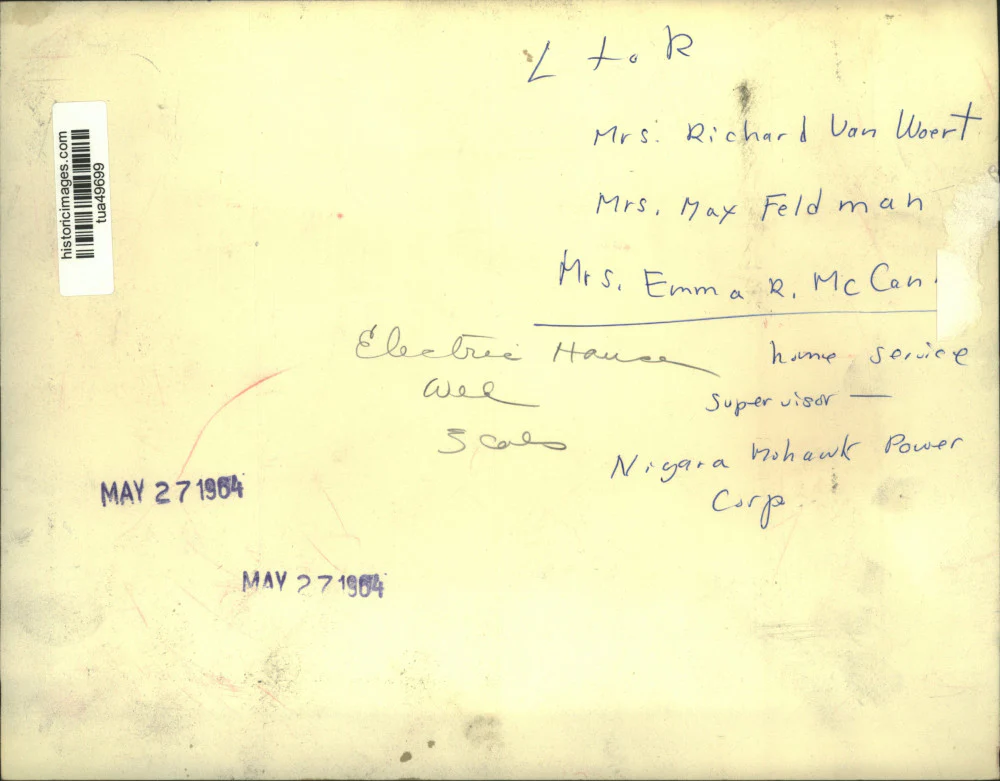 L to R
historicimages.com
tua49699
Mrs. Richard Van Woert
Mrs. Max Feldman
Mrs. Emma R. McCan
Electric House
home service
Wed
supervisor —
3 cols
Nigara Mohawk Power
Corp
MAY 27 1964
MAY 27 1964